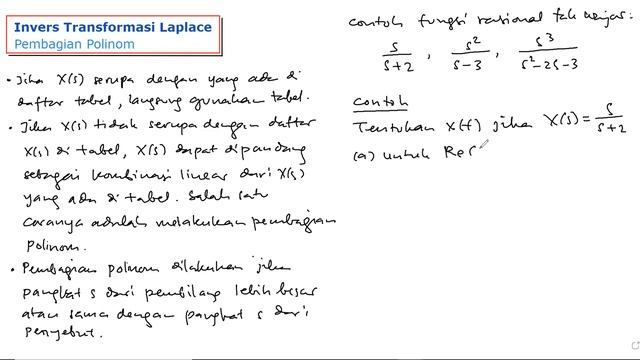 Invers Transformasi Laplace
Pembagian Polinom
• Jika X(s) serupa dengan yang ada di
daftar tabel, langsung gunakan tabel.
• Jika X(s) tidak serupa dengan daftar
X(s) di tabel, X(s) dapat dipandang
sebagai kombinasi linear dari X(s)
yang ada di tabel. Salah satu
caranya adalah melakukan pembagian
polinom.
• Pembagian polinom dilakukan jika
pangkat s dari pembilang lebih besar
atau sama dengan pangkat s dari
penyebut.
contoh fungsi rasional tak wajar:
s/(s+2) , s²/(s-3) , s³/(s²-2s-3)
contoh
Tentukan x(t) jika X(s) = s/(s+2)
(a) untuk Re(